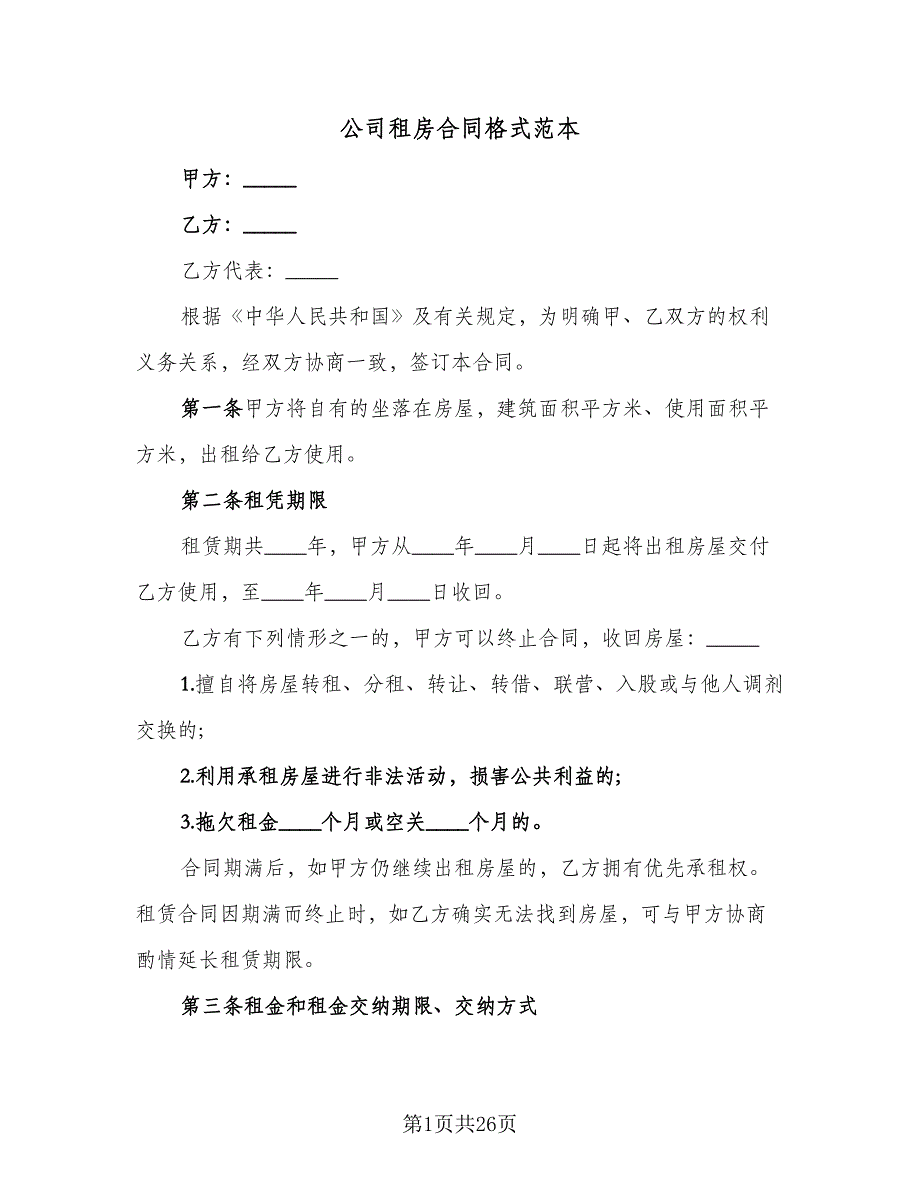 公司租房合同格式范本
甲方：_____
乙方：_____
乙方代表：_____
根据《中华人民共和国》及有关规定，为明确甲、乙双方的权利
义务关系，经双方协商一致，签订本合同。
第一条甲方将自有的坐落在房屋，建筑面积平方米、使用面积平
方米，出租给乙方使用。
第二条租凭期限
租赁期共____年，甲方从____年____月____日起将出租房屋交付
乙方使用，至____年____月____日收回。
乙方有下列情形之一的，甲方可以终止合同，收回房屋：_____
1.擅自将房屋转租、分租、转让、转借、联营、入股或与他人调剂
交换的;
2.利用承租房屋进行非法活动，损害公共利益的;
3.拖欠租金____个月或空关____个月的。
合同期满后，如甲方仍继续出租房屋的，乙方拥有优先承租权。
租赁合同因期满而终止时，如乙方确实无法找到房屋，可与甲方协商
酌情延长租赁期限。
第三条租金和租金交纳期限、交纳方式
第1页共26页